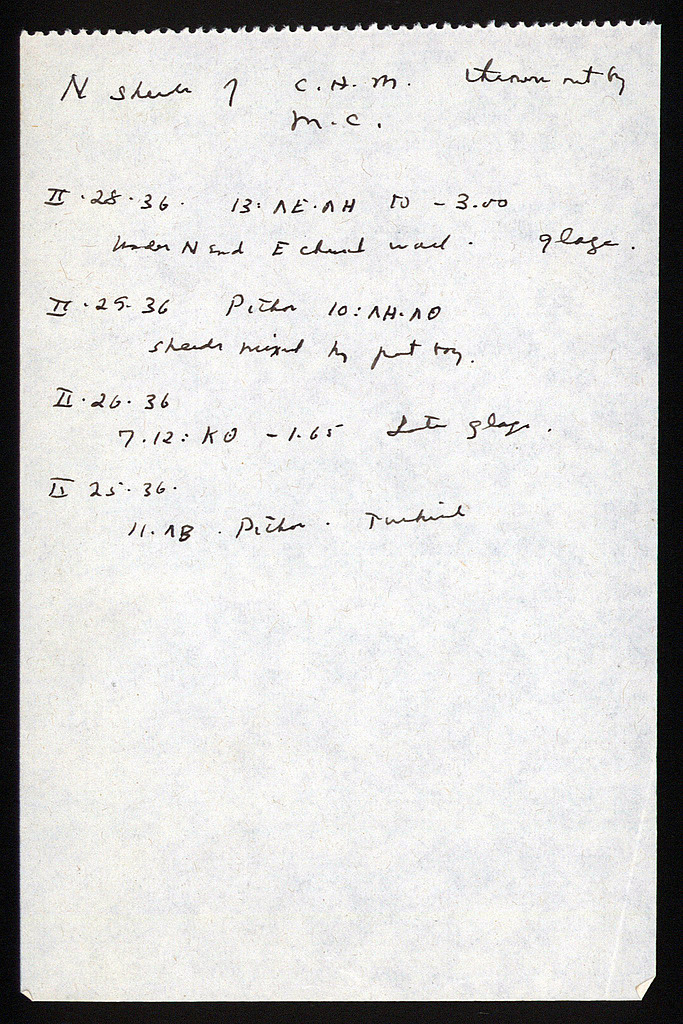 N sherds of C.H.M. thrown out by
M.C.
II.28.36. 13: ΛΕ.ΛΗ to -3.00
under N end E church wall. glaze.
II.29.36 Pithos 10: ΛΗ.ΛΘ
sherds mixed by pot boy.
II.26.36
7.12: ΚΘ -1.65 Late glaze.
II 25.36.
11.ΛΒ. Pithos. Turkish